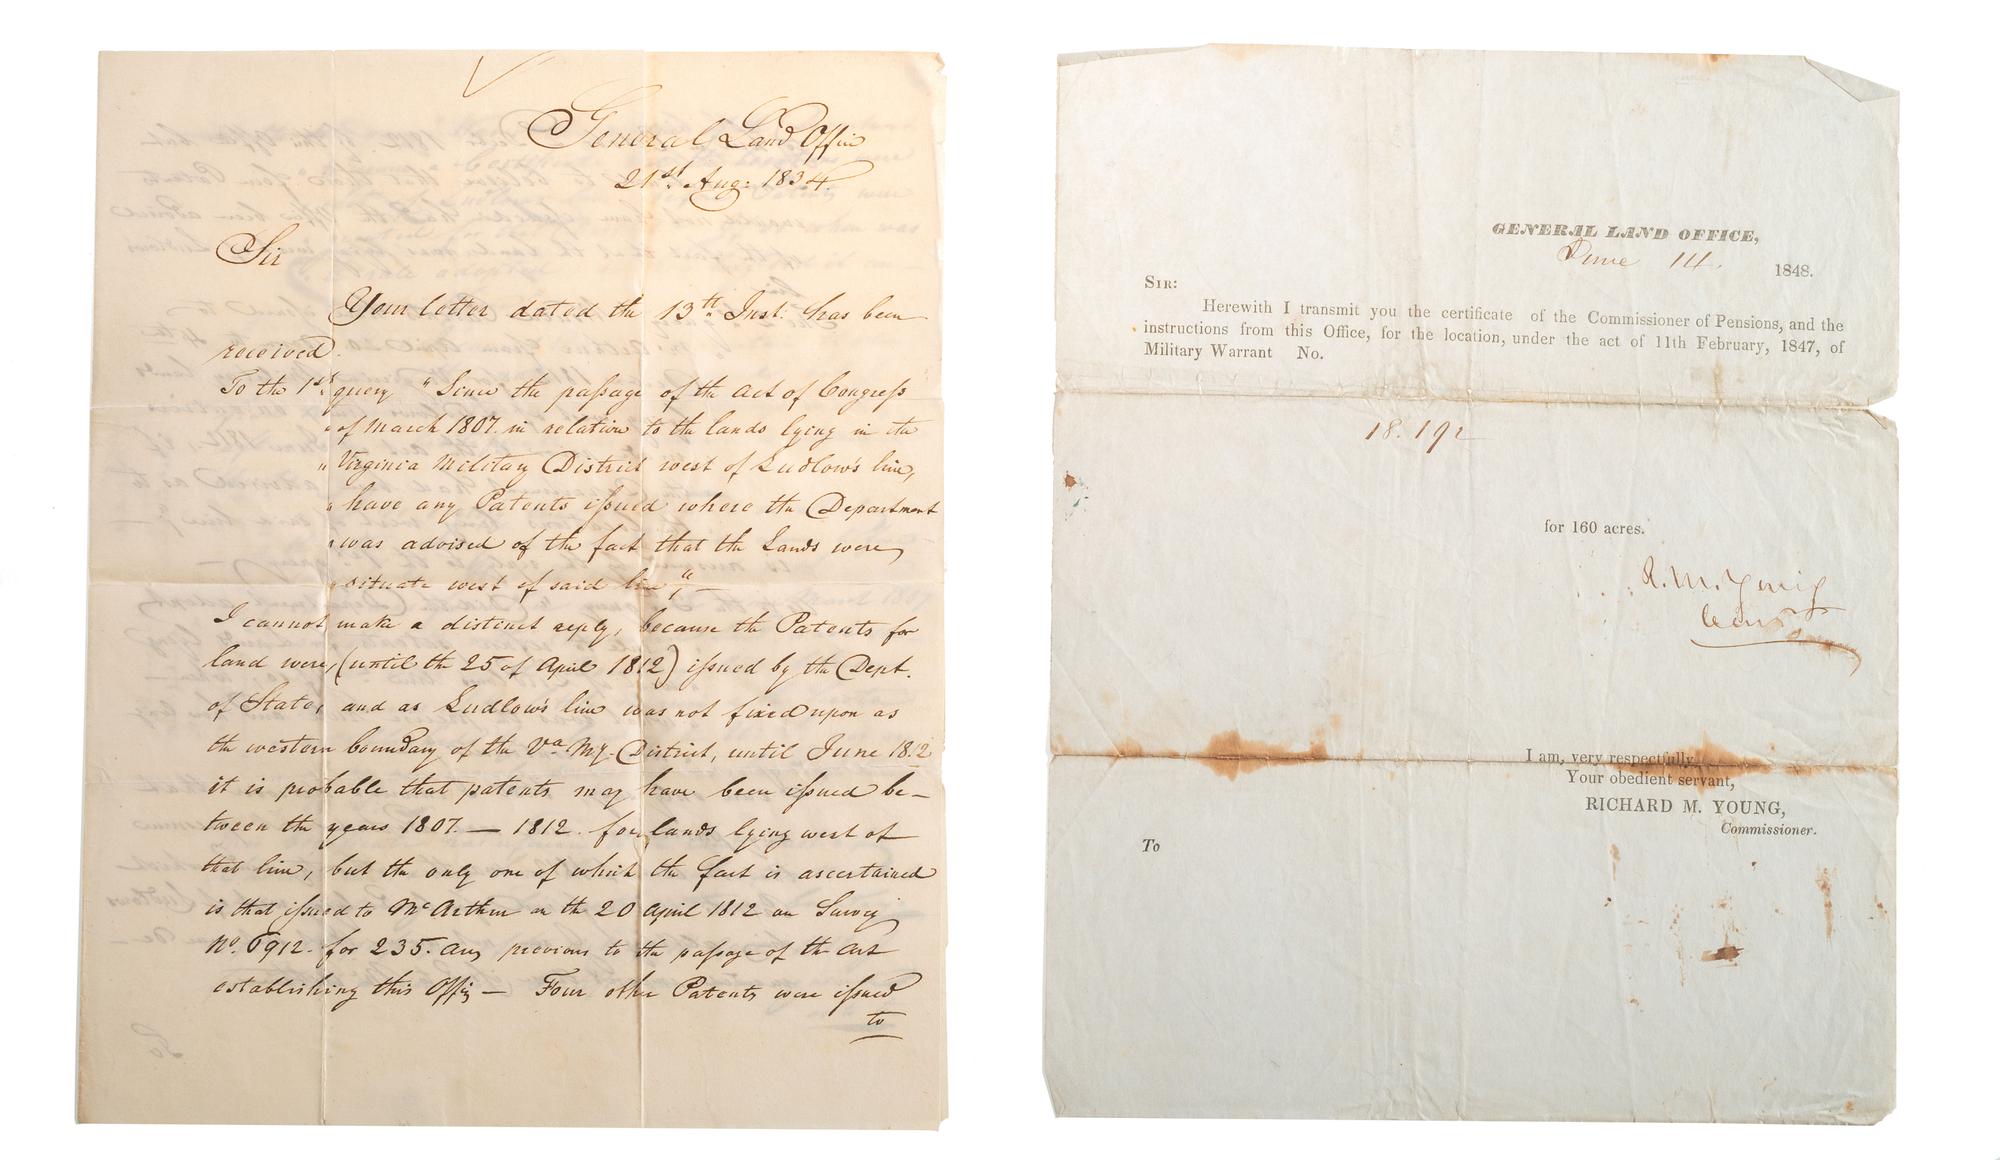 General Land Office
21st. Aug: 1834.
Sir
Your letter dated the 13th. Inst: has been
received.
To the 1st. query "Since the passage of the Act of Congress
"of March 1807. in relation to the lands lying in the
"Virginia Military District west of Ludlow's line,
"have any Patents issued where the Department
"was advised of the fact that the Lands were,
"situate west of said line,"—
I cannot make a distinct reply, because the Patents for
land were, (until the 25 of April 1812) issued by the Dept.
of State, and as Ludlow's line was not fixed upon as
the western boundary of the Va. My. District, until June 1812
it is probable that patents may have been issued be-
tween the years 1807. — 1812. for lands lying west of
that line, but the only one of which the fact is ascertained
is that issued to McArthur on the 20 April 1812 on Survey
No. 6912. for 235. acres previous to the passage of the Act
establishing this Office — Four other Patents were issued
to
GENERAL LAND OFFICE,
June 14. 1848.
SIR:
Herewith I transmit you the certificate of the Commissioner of Pensions, and the
instructions from this Office, for the location, under the act of 11th February, 1847, of
Military Warrant No.
18.192
for 160 acres.
R. M. Young
I am, very respectfully
Your obedient servant,
RICHARD M. YOUNG,
Commissioner.
To